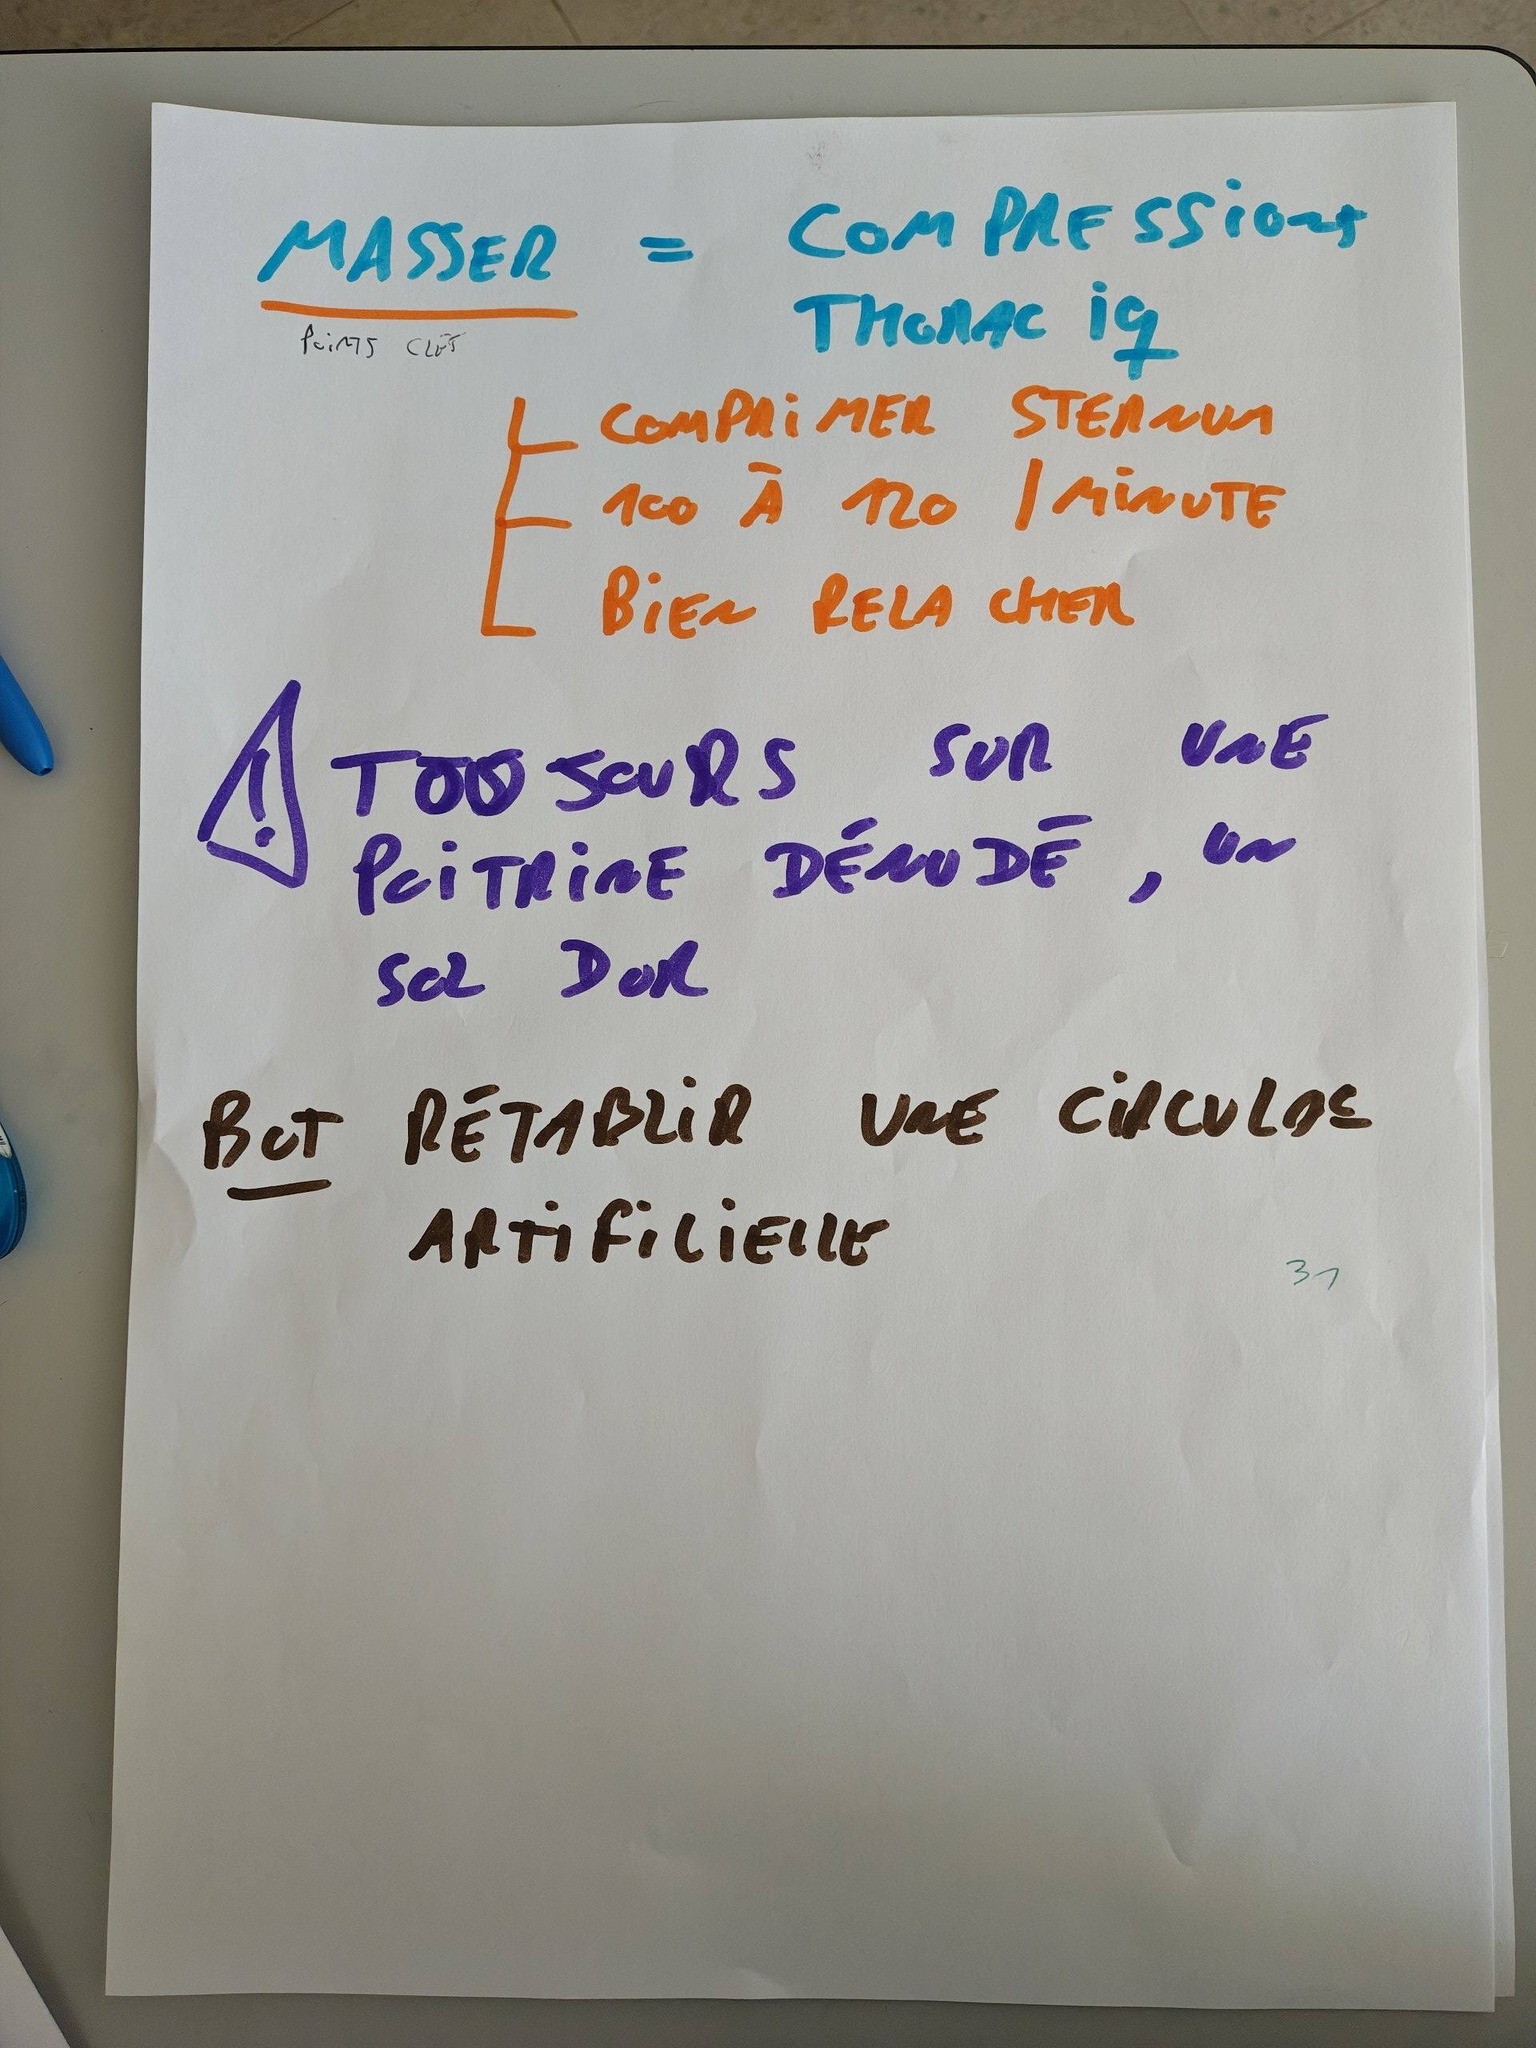 MASSER = COMPRESSIONS
THORACIQ
POINTS CLÉS
COMPRIMER STERNUM
100 À 120 / MINUTE
BIEN RELACHER
! TOUJOURS SUR UNE
POITRINE DÉNUDÉ, UN
SOL DUR
BUT RÉTABLIR UNE
ARTIFICIELLE
31